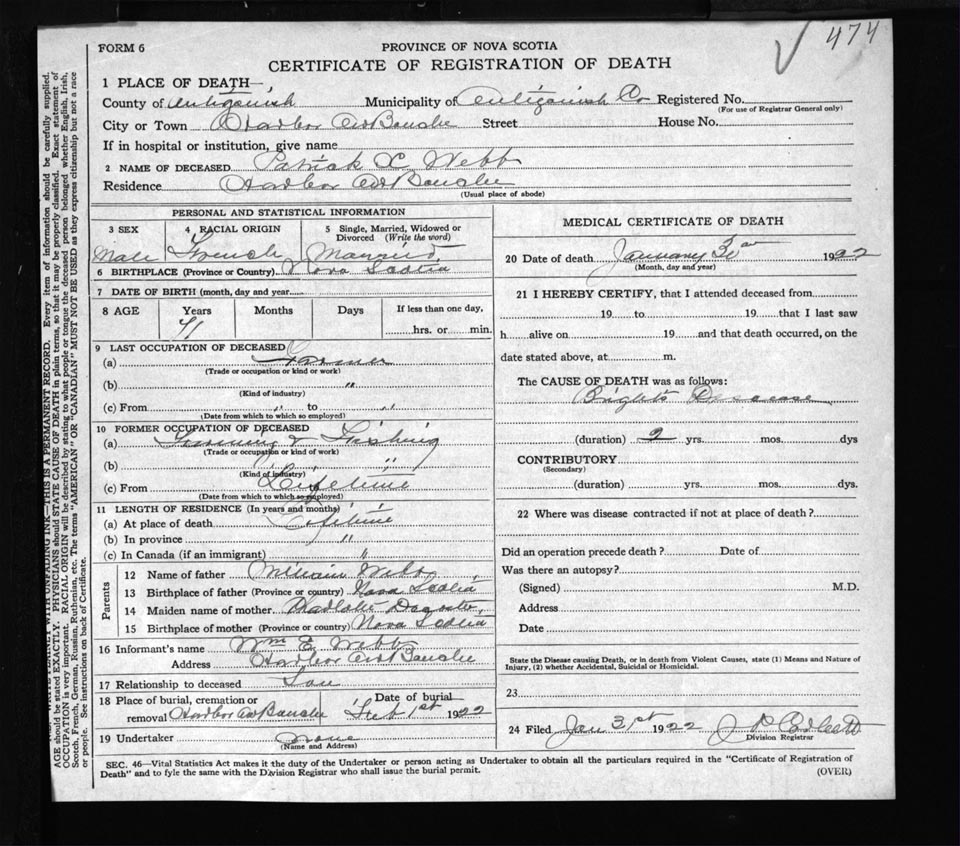 474
FORM 6
PROVINCE OF NOVA SCOTIA
CERTIFICATE OF REGISTRATION OF DEATH
1 PLACE OF DEATH—
County of Antigonish Municipality of Antigonish Co Registered No.
(For use of Registrar General only)
City or Town Harbor Au Bouche Street House No.
If in hospital or institution, give name
2 NAME OF DECEASED Patrick X Webb
Residence Harbor Au Bouche
(Usual place of abode)
PERSONAL AND STATISTICAL INFORMATION
3 SEX 4 RACIAL ORIGIN 5 Single, Married, Widowed or Divorced (Write the word)
Male French Married
6 BIRTHPLACE (Province or Country) Nova Scotia
7 DATE OF BIRTH (month, day and year)
8 AGE Years Months Days If less than one day,
71 hrs. or min.
9 LAST OCCUPATION OF DECEASED
(a) Farmer
(Trade or occupation or kind or work)
(b) "
(Kind of industry)
(c) From " to "
(Date from which to which so employed)
10 FORMER OCCUPATION OF DECEASED
(a) Farming & Fishing
(Trade or occupation or kind of work)
(b) "
(Kind of industry)
(c) From Lifetime
(Date from which to which so employed)
11 LENGTH OF RESIDENCE (In years and months)
(a) At place of death Lifetime
(b) In province "
(c) In Canada (if an immigrant) "
Parents
12 Name of father William Webb
13 Birthplace of father (Province or country) Nova Scotia
14 Maiden name of mother Charlotte
15 Birthplace of mother (Province or country) Nova Scotia
16 Informant's name Wm E Webb
Address Harbor Au Bouche
17 Relationship to deceased Son
18 Place of burial, cremation or removal Harbor Au Bouche Date of burial Feb 1st 1922
19 Undertaker none
(Name and Address)
MEDICAL CERTIFICATE OF DEATH
20 Date of death January 30 1922
(Month, day and year)
21 I HEREBY CERTIFY, that I attended deceased from
19 to 19 that I last saw
h alive on 19 and that death occurred, on the
date stated above, at m.
The CAUSE OF DEATH was as follows:
Bright's Disease
(duration) 2 yrs. mos. dys
CONTRIBUTORY
(Secondary)
(duration) yrs. mos. dys.
22 Where was disease contracted if not at place of death?
Did an operation precede death? Date of
Was there an autopsy?
(Signed) M.D.
Address
Date
State the Disease causing Death, or in death from Violent Causes, state (1) Means and Nature of
Injury, (2) whether Accidental, Suicidal or Homicidal.
23
24 Filed Jan 31st 1922 J P Corbett
Division Registrar
SEC. 46—Vital Statistics Act makes it the duty of the Undertaker or person acting as Undertaker to obtain all the particulars required in the "Certificate of Registration of
Death" and to fyle the same with the Division Registrar who shall issue the burial permit. (OVER)
WITH UNFADING INK—THIS IS A PERMANENT RECORD. Every item of information should be carefully supplied.
AGE should be stated EXACTLY. PHYSICIANS should STATE CAUSE OF DEATH in plain terms, so that it may be properly classified. Exact statement of
OCCUPATION is very important. RACIAL ORIGIN will be described by stating to what people or tongue the deceased person belonged whether English, Irish,
Scotch, French, German, Russian, Ruthenian, etc. The terms "AMERICAN" OR "CANADIAN" MUST NOT BE USED as they express citizenship but not a race
or people. See instructions on back of Certificate.